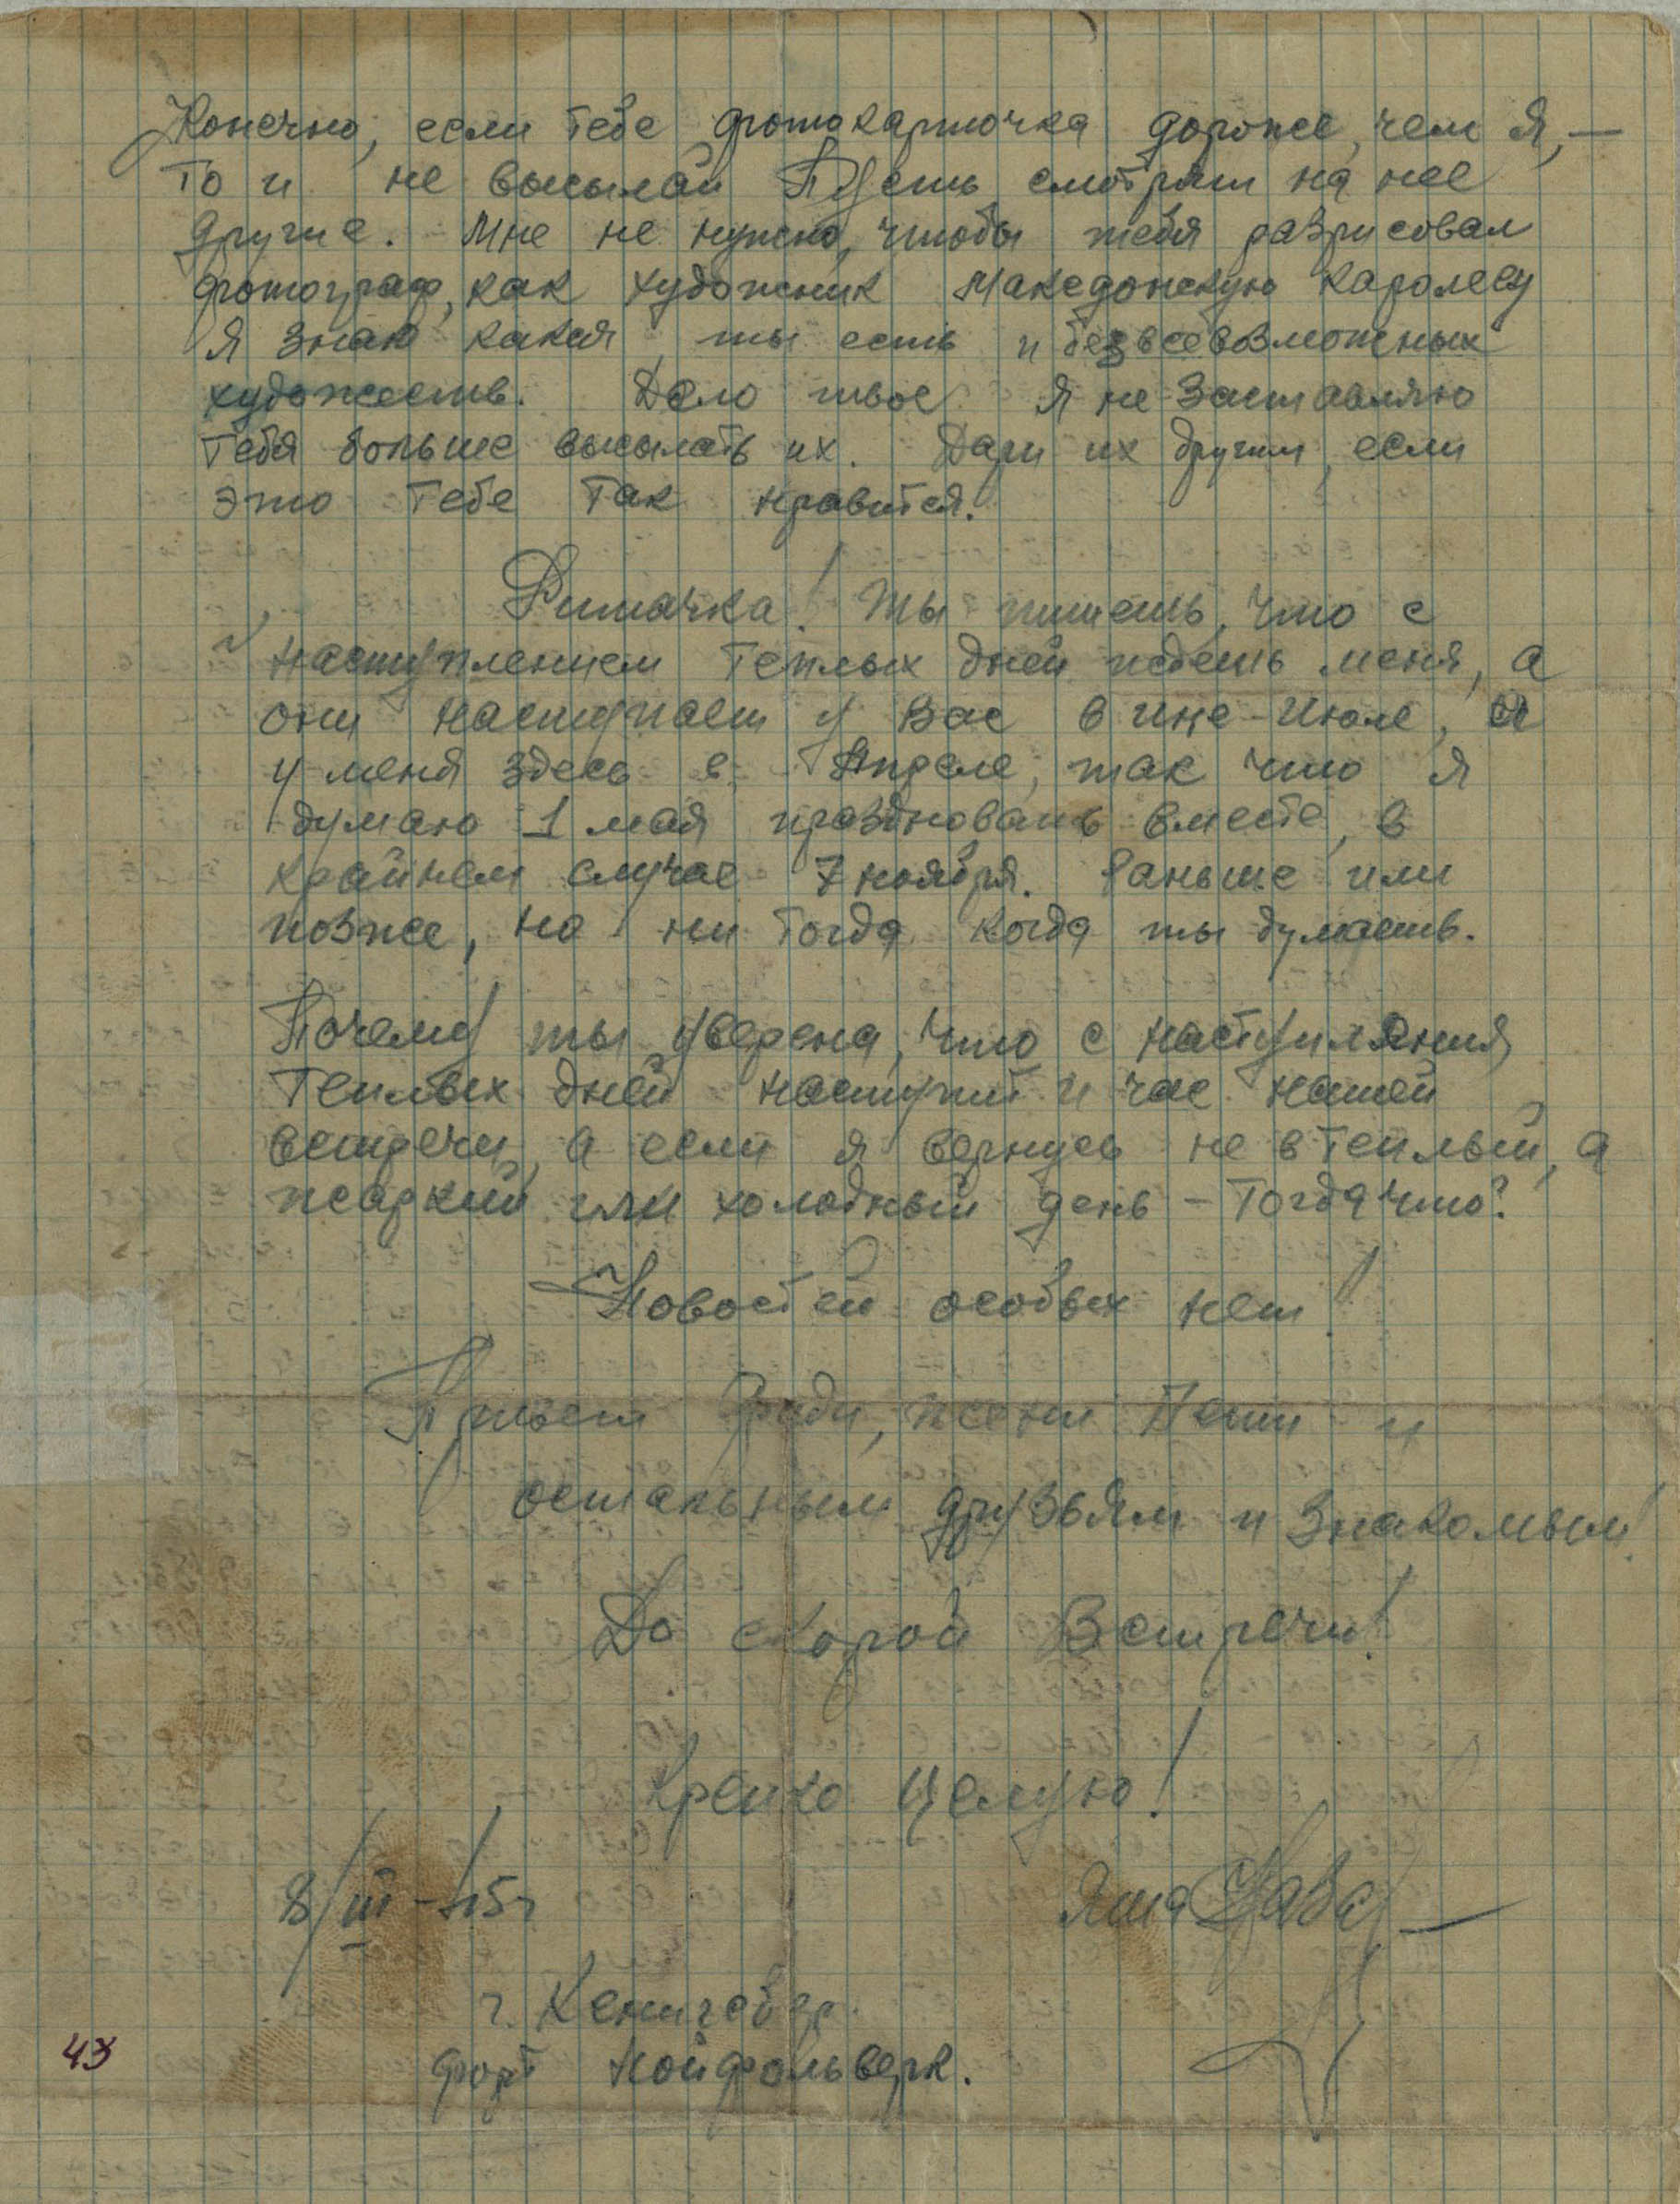 Конечно, если тебе фотокарточка дороже, чем я, —
то и не высылай Пусть смотрят на нее
другие. Мне не нужно, чтобы тебя разрисовал
фотограф, как художник Македонскую каролеву
Я знаю какая ты есть и без всевозможных
художеств. Дело твое. Я не заставляю
тебя больше высылать их. Дари их другим, если
это тебе так нравится.
Риточка! Ты пишешь, что с
наступлением теплых дней ждешь меня, а
они наступает у вас в ине-июле, а
у меня здесь в Апреле, так что я
думаю 1 мая праздновать вместе, в
крайнем случае 7 ноября. Раньше или
позже, но ни тогда когда ты думаешь.
Почему ты уверена, что с наступления
теплых дней наступит и час нашей
встречи, а если я вернусь не в теплый, а
жаркий или холодный день - тогда что?
Новостей особых нет!
Привет Фриди, жени Пети и
остальным друзьям и знакомым!
До скорой Встречи!
Крепко целую!
8/III-45г Яша
г. Кенигсбер.
форт Нойфольверк.
43